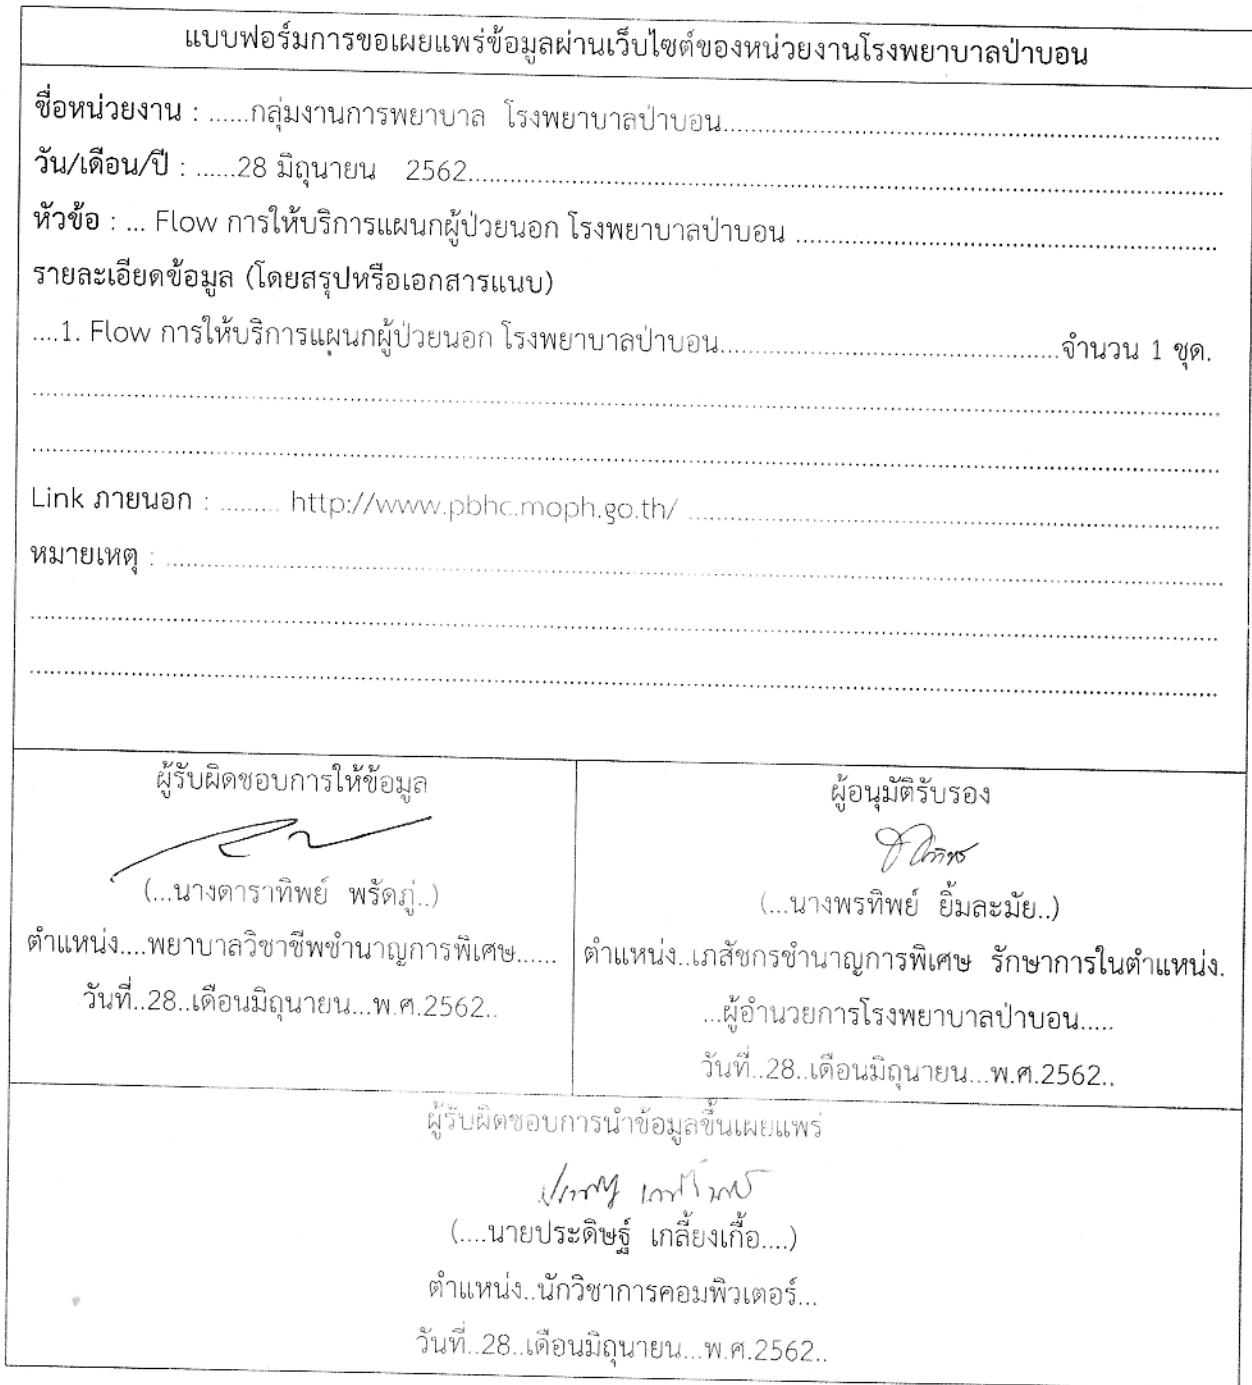 แบบฟอร์มการขอเผยแพร่ข้อมูลผ่านเว็บไซต์ของหน่วยงานโรงพยาบาลป่าบอน
ชื่อหน่วยงาน : ......กลุ่มงานการพยาบาล โรงพยาบาลป่าบอน..........
วัน/เดือน/ปี : ......28 มิถุนายน 2562..........
หัวข้อ : ... Flow การให้บริการแผนกผู้ป่วยนอก โรงพยาบาลป่าบอน ..........
รายละเอียดข้อมูล (โดยสรุปหรือเอกสารแนบ)
....1. Flow การให้บริการแผนกผู้ป่วยนอก โรงพยาบาลป่าบอน..........จำนวน 1 ชุด.
Link ภายนอก : ......... http://www.pbhc.moph.go.th/ ..........
หมายเหตุ : ..........
ผู้รับผิดชอบการให้ข้อมูล
(...นางดาราทิพย์ พรัดภู่..)
ตำแหน่ง....พยาบาลวิชาชีพชำนาญการพิเศษ......
วันที่..28..เดือนมิถุนายน...พ.ศ.2562..
ผู้อนุมัติรับรอง
(...นางพรทิพย์ ยิ้มละมัย..)
ตำแหน่ง..เภสัชกรชำนาญการพิเศษ รักษาการในตำแหน่ง.
...ผู้อำนวยการโรงพยาบาลป่าบอน.....
วันที่..28..เดือนมิถุนายน...พ.ศ.2562..
ผู้รับผิดชอบการนำข้อมูลขึ้นเผยแพร่
(....นายประดิษฐ์ เกลี้ยงเกื้อ....)
ตำแหน่ง..นักวิชาการคอมพิวเตอร์...
วันที่..28..เดือนมิถุนายน...พ.ศ.2562..